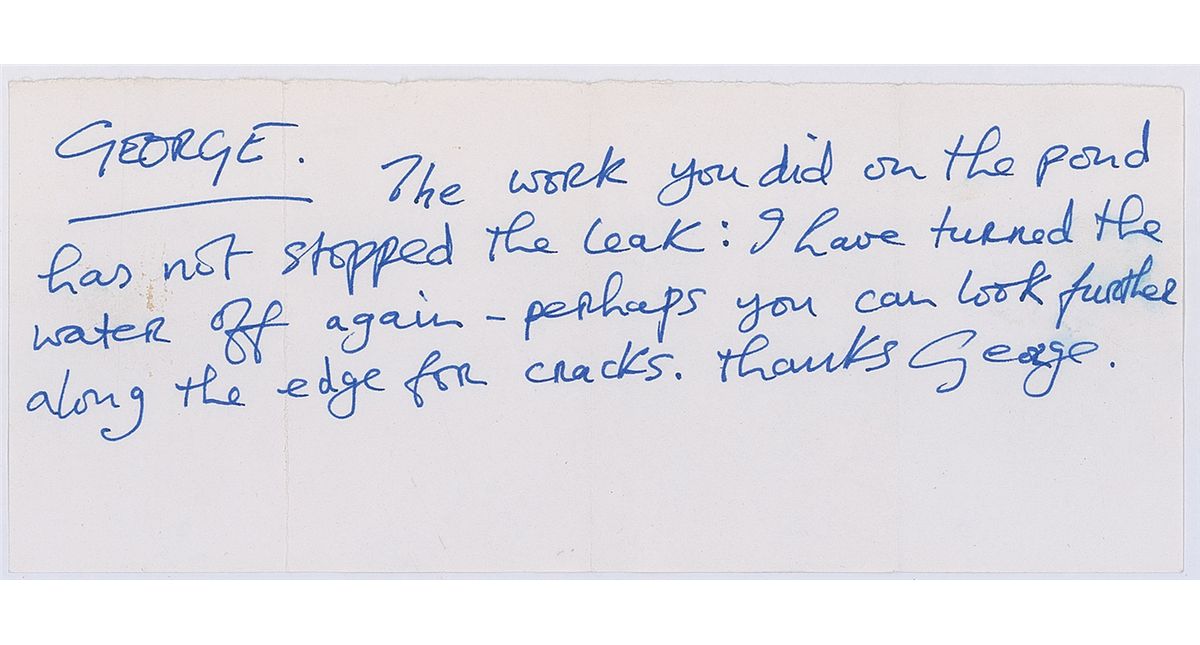 GEORGE. The work you did on the pond
has not stopped the leak: I have turned the
water off again - perhaps you can look further
along the edge for cracks. thanks George.